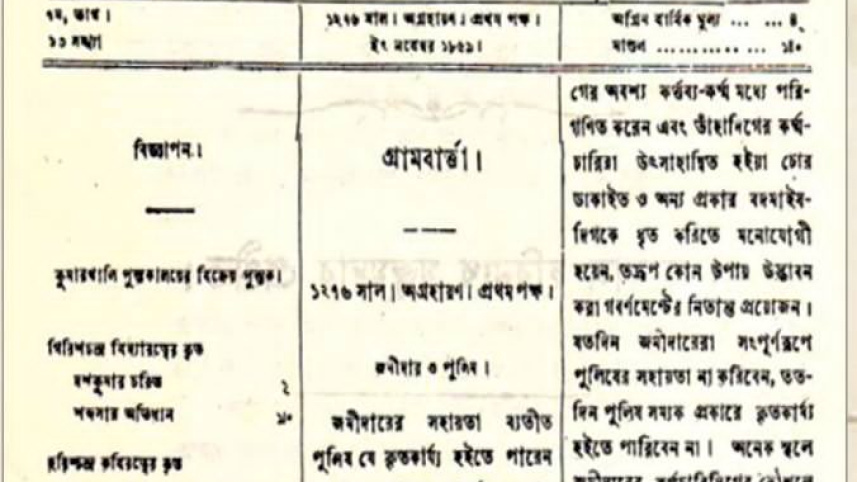 ৭ম, ভাগ।
১৩ সঙ্খ্যা
১২৭৬ সাল। অগ্রহায়ণ। প্রথম পক্ষ।
ইং নবেম্বর ১৮৬৯।
অগ্রিম বার্ষিক মূল্য ... ... ৪৲
মাশুল ... ... ... ... ১৷০
বিজ্ঞাপন।
কুমারখালি পুস্তকালয়ের বিক্রেয় পুস্তক।
গিরিশচন্দ্র বিদ্যারত্নের কৃত
দশকুমার চরিত ২
শব্দসার অভিধান
হরিশ্চন্দ্র কবিরত্নের কৃত
গ্রামবার্ত্তা।
১২৭৬ সাল। অগ্রহায়ণ। প্রথম পক্ষ।
জমীদার ও পুলিষ।
জমীদারের সহায়তা ব্যতীত
পুলিষ যে কৃতকার্য্য হইতে পারেন
গের অবশ্য কর্ত্তব্য-কর্ম্ম মধ্যে পরি-
গণিত করেন এবং তাঁহাদিগের কর্ম্ম-
চারিরা উৎসাহান্বিত হইয়া চোর
ডাকাইত ও অন্য প্রকার বদমাইষ-
দিগকে ধৃত করিতে মনোযোগী
হয়েন, তদ্রূপ কোন উপায় উদ্ভাবন
করা গবর্ণমেন্টের নিতান্ত প্রয়োজন।
যতদিন জমীদারেরা সংপূর্ণরূপে
পুলিষের সহায়তা না করিবেন, তত-
দিন পুলিষ সম্যক প্রকারে কৃতকার্য্য
হইতে পারিবেন না। অনেক স্থলে